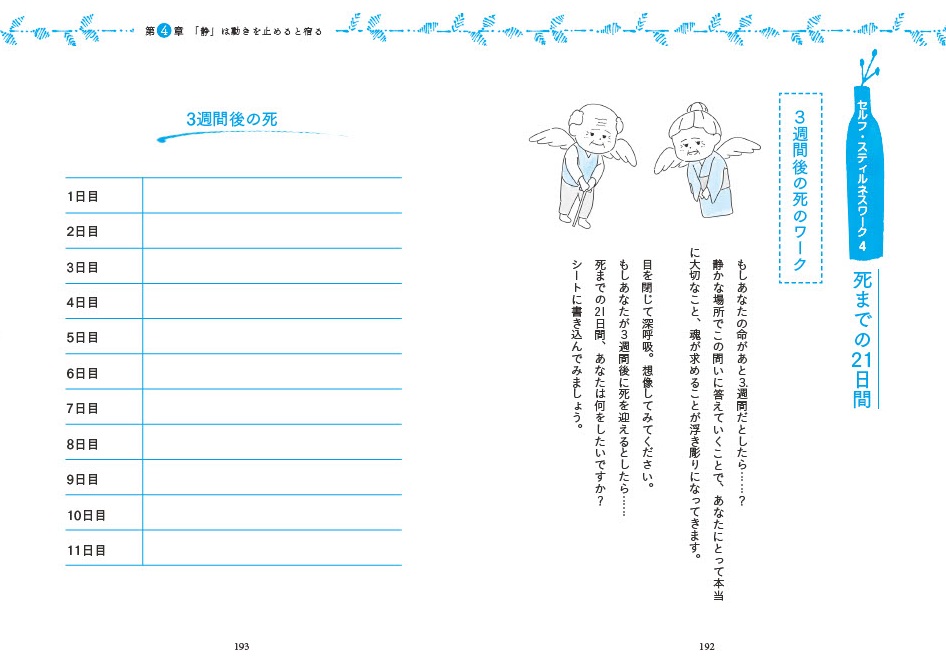 第4章 「静」は動きを止めると宿る
セルフ・スティルネスワーク 4
死までの21日間
3週間後の死のワーク
もしあなたの命があと3週間だとしたら……?
静かな場所でこの問いに答えていくことで、あなたにとって本当
に大切なこと、魂が求めることが浮き彫りになってきます。
目を閉じて深呼吸。想像してみてください。
もしあなたが3週間後に死を迎えるとしたら……
死までの21日間、あなたは何をしたいですか?
シートに書き込んでみましょう。
192
3週間後の死
1日目
2日目
3日目
4日目
5日目
6日目
7日目
8日目
9日目
10日目
11日目
193